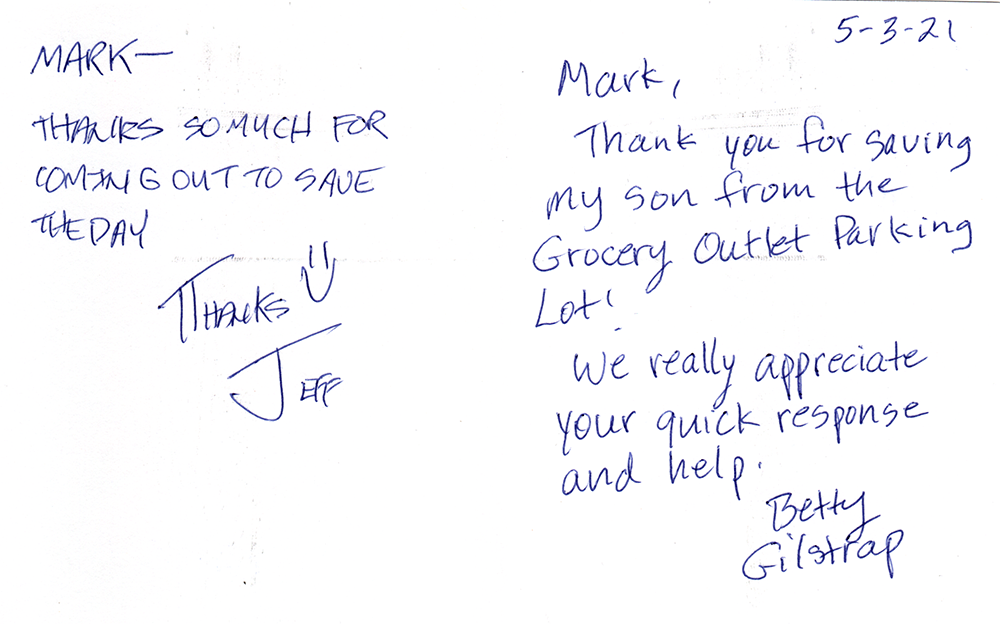 MARK—
THANKS SO MUCH FOR
COMING OUT TO SAVE
THE DAY
THANKS
JEFF
5-3-21
Mark,
Thank you for saving
my son from the
Grocery Outlet Parking
Lot!
We really appreciate
your quick response
and help.
Betty
Gilstrap